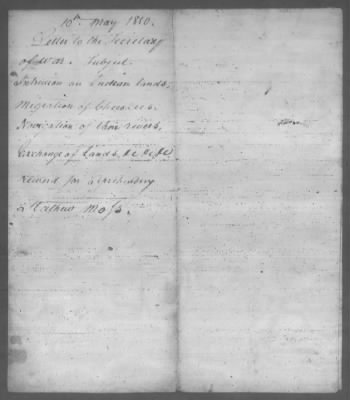 10th May 1810.
Letter to the Secretary
of War. Subject
Intrusion on Indian lands,
Migration of Cherokees.
Navigation of their rivers,
Exchange of Lands, &c, &c, &c
reward for apprehending
Moss.